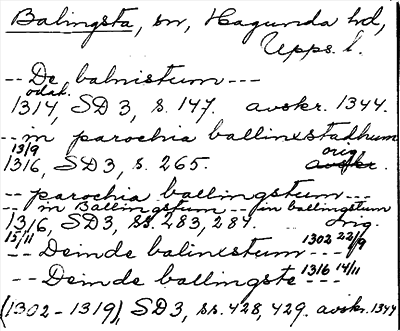 Balingsta, sn, Hagunda hd,
Upps. l.
-- De balnistum ---
odat.
1314, SD 3, s. 147. avskr. 1344.
-- in parochia ballinxstadhum
13/9 orig.
1316, SD 3, s. 265. avskr.
-- parochia ballingstum --
-- in Ballingstum -- in ballingstum
1316, SD3, ss. 283, 284. -- orig.
15/11 1302 22/9
-- Deinde balinxstum ---
-- Deinde ballingste --- 1316 14/11
(1302-1319), SD 3, ss. 428, 429. avskr. 1344